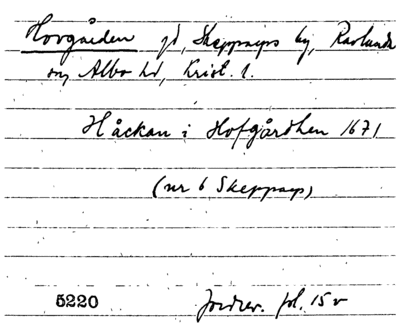 Hovgården gd, Skepparps by, Ravlunda
sn, Albo hd, Krist. l.
Håckan i Hofgårdhen 1671
(nr 6 Skepparp)
5220 Jordrev. fol. 15 v